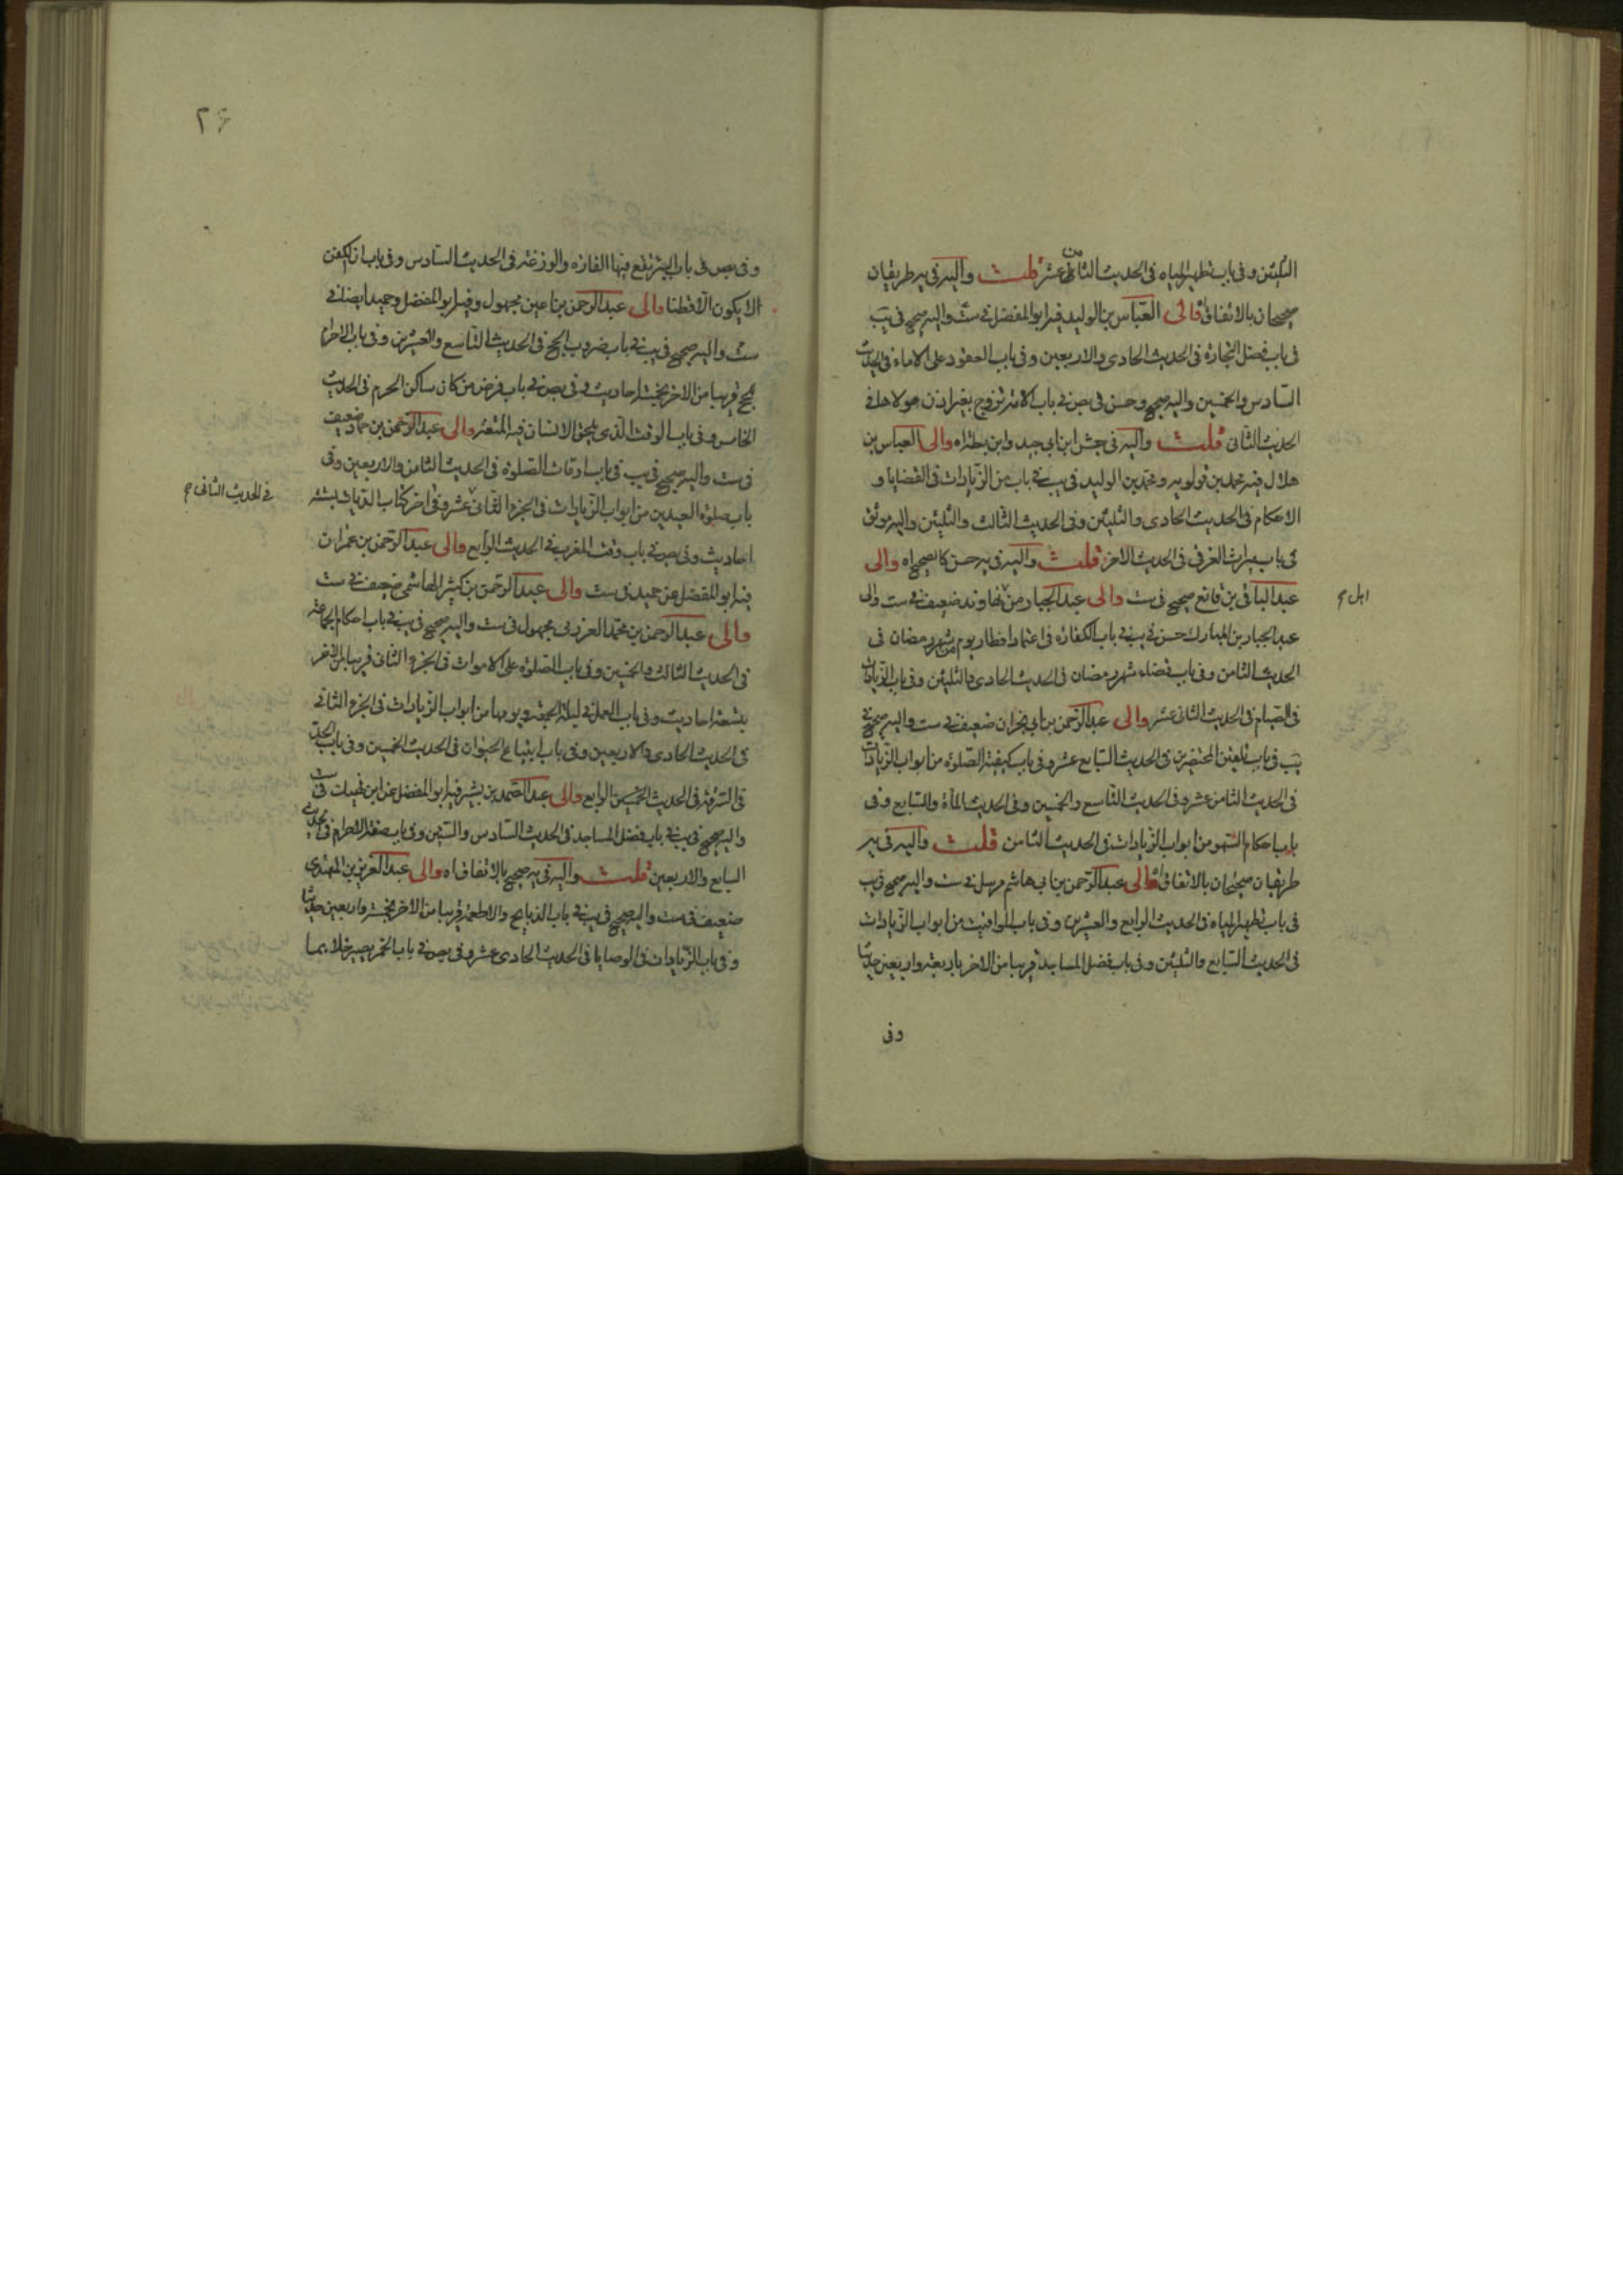 الثلثين وفى باب تطهير المياه فى الحديث الثامن عشر قلت واليه فى ير طريقان
صحيحان بالاتفاق والى العباس بن الوليد فيه ابو المفضل فى ست واليه صحيح فى يب
فى باب فضل التجارة فى الحديث الحادى والاربعين وفى باب العقود على الاماء فى الحديث
السادس والخمسين واليه صحيح وحسن فى بص فى باب الامة تزوج بغير اذن مولاها فى
الحديث الثانى قلت واليه فى جش ابن ابى جيد وابن بطة اه والى العباس بن
هلال فيه محمد بن قولويه ومحمد بن الوليد فى يب فى باب من الزيادات فى القضايا و
الاحكام فى الحديث الحادى والثلثين وفى الحديث الثالث والثلثين واليه موثق
فى باب ميراث الغرقى فى الحديث الاخر قلت واليه فى ير حسن كالصحيح اه والى
عبد الباقى بن قانع صحيح فى ست والى عبد الجبار من نهاوند ضعيف فى ست والى
اهل م
عبد الجبار بن المبارك حسن فى يب فى باب الكفارة فى اعتماد افطار يوم من شهر رمضان فى
الحديث الثامن وفى باب قضاء شهر رمضان فى الحديث الحادى والثلثين وفى باب الزيادات
فى الصيام فى الحديث الثانى عشر والى عبد الرحمن بن ابى نجران ضعيف فى ست واليه صحيح فى
يب فى باب تلقين المحتضرين فى الحديث السابع عشر وفى باب كيفية الصلوة من ابواب الزيادات
فى الحديث الثامن عشر وفى الحديث التاسع والخمسين وفى الحديث المأة والسابع وفى
باب احكام السهو من ابواب الزيادات فى الحديث الثامن قلت واليه فى ير
طريقان صحيحان بالاتفاق والى عبد الرحمن بن ابى هاشم مرسل فى ست واليه صحيح فى يب
فى باب تطهير المياه فى الحديث الرابع والعشرين وفى باب المواقيت من ابواب الزيادات
فى الحديث السابع والثلثين وفى باب فضل المساجد قريبا من الاخر باربعة واربعين حديثا
وفى
٢٦
وفى بص فى باب البئر تقع فيها الفارة والوزغة فى الحديث السادس وفى باب ان الكفن
لا يكون الا قطنا والى عبد الرحمن بن اعين مجهول وفيه ابو المفضل وحميد ايضا فى
ست واليه صحيح فى يب فى باب ضروب الحج فى الحديث التاسع والعشرين وفى باب الاحرام
للحج قريبا من الاخر بخمسة احاديث وفى بص فى باب فرض من كان ساكن الحرم فى الحديث
الخامس وفى باب الوقت الذى يلحق الانسان فيه المتعة والى عبد الرحمن بن حماد ضعيف
فى ست واليه صحيح فى يب فى باب اوقات الصلوة فى الحديث الثامن والاربعين وفى
باب صلوة العيدين من ابواب الزيادات فى الجزء الثانى عشر وفى اخر كتاب الديات بستة
فى الحديث الثانى م
احاديث وفى بص فى باب وقت المغرب فى الحديث الرابع والى عبد الرحمن بن عمران
فيه ابو المفضل عن حميد فى ست والى عبد الرحمن بن كثير الهاشمى ضعيف فى ست
والى عبد الرحمن بن محمد العرزمى مجهول فى ست واليه صحيح فى يب فى باب احكام الجماعة
فى الحديث الثالث والخمسين وفى باب الصلوة على الاموات فى الجزء الثانى قريبا من الاخر
بتسعة احاديث وفى باب العمل فى ليلة الجمعة ويومها من ابواب الزيادات فى الجزء الثانى
فى الحديث الحادى والاربعين وفى باب ابتياع الحيوان فى الحديث الخمسين وفى باب الحد
فى السرقة فى الحديث الخمسين الرابع والى عبد الصمد بن بشير فيه ابو المفضل عن ابن فى ست
واليه صحيح فى يب فى باب فضل المساجد فى الحديث السادس والستين وفى باب صفة الاحرام فى الحديث
السابع والاربعين قلت واليه فى ير صحيح بالاتفاق اه والى عبد العزيز بن المهتدى
ضعيف فى ست واليه صحيح فى يب فى باب الذبايح والاطعمة قريبا من الاخر بخمسة واربعين حديثا
وفى باب الزيادات فى الوصايا فى الحديث الحادى عشر وفى بص فى باب الخمر يصير خلا بما